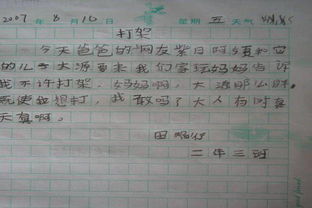 2007 年 8 月 10 日 星期 五 天气
打架
今天爸爸的网友柴日呵烦和它
的儿子大源要来我们家玩妈妈告诉
我不许打架,妈妈啊,大源那么胖,
就使我想打,我敢吗?大人有时真
天真啊。
田
二年三班